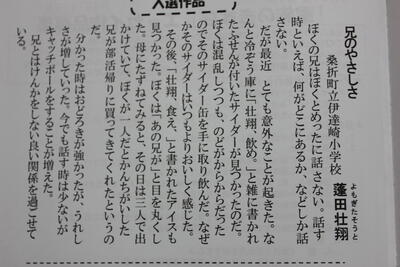 入選作品
兄のやさしさ
桑折町立伊達崎小学校　蓬田壮翔
よもぎたそうと
ぼくの兄はぼくとめったに話さない。話す
時といえば、何がどこにあるか、などしか話
さない。
だが最近、とても意外なことが起きた。な
んと冷ぞう庫に「壮翔、飲め。」と雑に書かれ
たふせんが付いたサイダーが見つかったのだ。
ぼくは混乱しつつも、のどがからからだった
のでそのサイダー缶を手に取り飲んだ。なぜ
かそのサイダーはいつもよりおいしく感じた。
その後、「壮翔、食え。」と書かれたアイスも
見つかった。ぼくは「あの兄が」と目を丸くし
た。母にたずねてみると、その日は三人で出
かけていて、ぼくが一人だとかんちがいした
兄が部活帰りに買ってきてくれたというの
だ。
分かった時はおどろきが強かったが、うれし
さが増していった。今でも話す時は少ないが
キャッチボールをすることが増えた。
兄とはけんかをしない良い関係を過ごせて
いる。